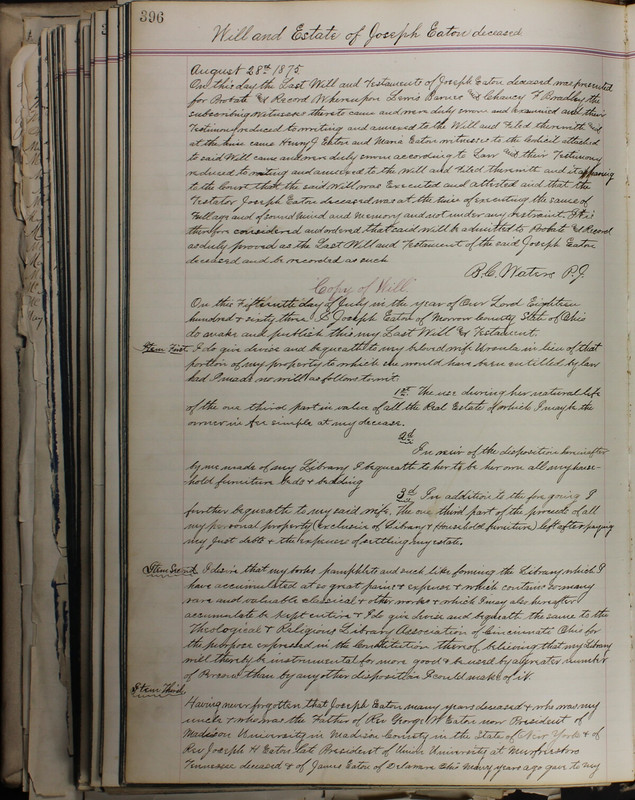 396
Will and Estate of Joseph Eaton deceased
August 28th 1875
On this day the Last Will and Testaments of Joseph Eaton deceased was presented
for Probate and Record Whereupon Lewis Barnes and Chancy F Bradley the
subscribing witnesses thereto came and were duly sworn and examined and their
Testimony reduced to writing and annexed to the Will and Filed therewith and
at the same time came Henry J Eaton and Maria Eaton witnesses to the Codicil attached
to said Will came and were duly sworn according to Law and their Testimony
reduced to writing and annexed to the Will and Filed therewith and it appearing
to the Court that the said Will was Executed and attested and that the
Testator Joseph Eaton deceased was at the time of executing the same of
Full age and of sound mind and memory and not under any restraint. It is
therefore considered and ordered that said will be admitted to Probate and Record
as duly proved as the Last Will and Testament of the said Joseph Eaton
deceased and be recorded as such
B. C. Waters P.J.
Copy of Will.
On this Fifteenth day of July in the year of Our Lord Eighteen
hundred & sixty three I Joseph Eaton of Morrow County State of Ohio
do make and publish this my Last Will and Testament.
Item First. I do give devise and bequeath to my beloved wife Ursula in lieu of that
portion of my property to which she would have been entitled by law
had I made no will as follows towit.
1st The use during her natural life
of the one third part in value of all the Real Estate of which I may be the
owner in fee simple at my decease.
2d
In view of the disposition hereinafter
by me made of my Library I bequeath to her to be her own all my house-
hold furniture beds & bedding
3d In addition to the foregoing I
further bequeath to my said wife. The one third part of the proceeds of all
my personal property (exclusive of Library & Household furniture) left after paying
my Just debts & the expenses of settling my estate.
Item Second. I desire that my books pamphlets and such like forming the Library which I
have accumulated at so great pains & expense & which contains so many
rare and valuable classical & other works & which I may also hereafter
accumulate be kept entire & I do give devise and bequeath the same to the
Theological & Religious Library Association of Cincinnati Ohio for
the purpose expressed in the Constitution thereof believing that my Library
will thereby be instrumental for more good & be used by a greater number
of Persons than by any other disposition I could make of it.
Item Third
Having never forgotten that Joseph Eaton many years deceased & who was my
uncle & who was the Father of Rev George W Eaton now President of
Madison University in Madison County in the State of New York & of
Rev Joseph H Eaton late President of Union University at Murfreesboro
Tennessee deceased & of James Eaton of Delaware Ohio Many years ago gave to my